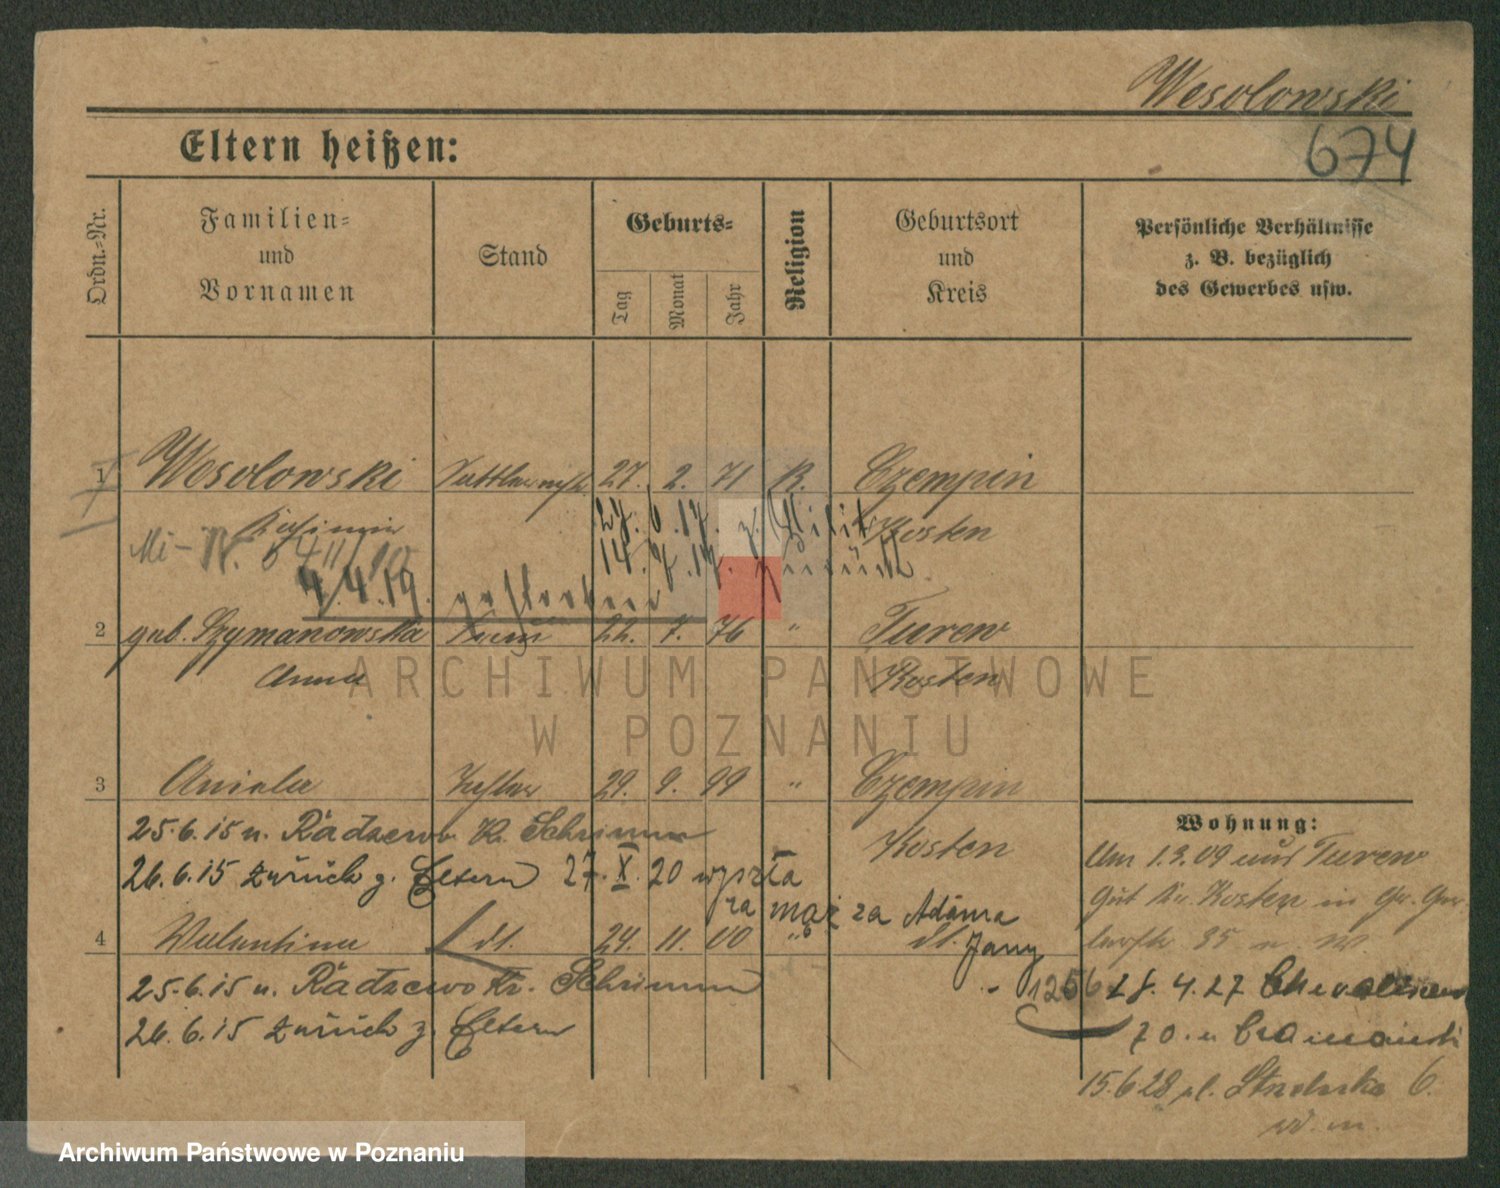 Wesolowski
674
Eltern heißen:
Ordn.-Nr.
Familien- und Vornamen
Stand
Geburts-
Tag
Monat
Jahr
Religion
Geburtsort und Kreis
Persönliche Verhältnisse z. B. bezüglich des Gewerbes usw.
1 Wesolowski 27. 2. 71 K. Czempin
Kasimir Kosten
27. 6. 17. z. Militär
14. 7. 17. zurück
4. 4. 19. gestorben
2 geb. Szymanowska Frau 22. 7. 76 " Turew
Anna Kosten
ARCHIWUM PAŃSTWOWE
W POZNANIU
3 Aniela Tochter 29. 9. 99 " Czempin
Kosten
25.6.15 n. Radzewo Kr. Schrimm
26.6.15 zurück z. Eltern 27. X. 20 wyszła
za mąż za Adama
Jany
4 Valentina dt. 24. 11. 00 " dt.
25.6.15 n. Radzewo Kr. Schrimm
26.6.15 zurück z. Eltern
Wohnung:
Am 1.3.09 aus Turew
Gut Kr. Kosten in
35
1256 28. 4. 27
70.
15.6 28 pl. 6.
Archiwum Państwowe w Poznaniu